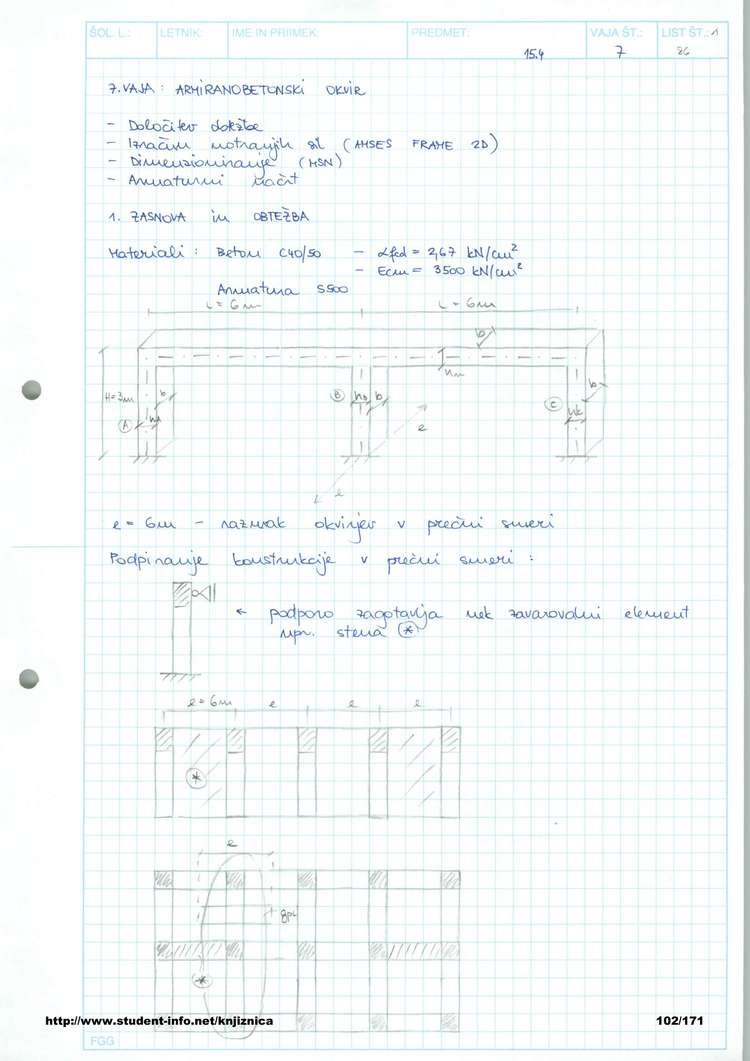 ŠOL. L.: LETNIK: IME IN PRIIMEK: PREDMET: VAJA ŠT.: LIST ŠT.: 1
15.4 7 86
7. VAJA: ARMIRANOBETONSKI OKVIR
- Določitev obtežbe
- Izračun notranjih sil (AMSES FRAME 2D)
- Dimenzioniranje (MSN)
- Armaturni načrt
1. ZASNOVA in OBTEŽBA
Materiali: Beton C40/50 - αfcd = 2,67 kN/cm²
- Ecm = 3500 kN/cm²
Armatura S500
L = 6m L = 6m
b
hm
H=3m b B hB b C b
A hA hC
e
e
e = 6m - razmak okvirjev v prečni smeri
Podpiranje konstrukcije v prečni smeri:
← podporo zagotavlja nek zavarovalni element
npr. stena *
e = 6m e e e
*
e
gpl
*
http://www.student-info.net/knjiznica 102/171
FGG